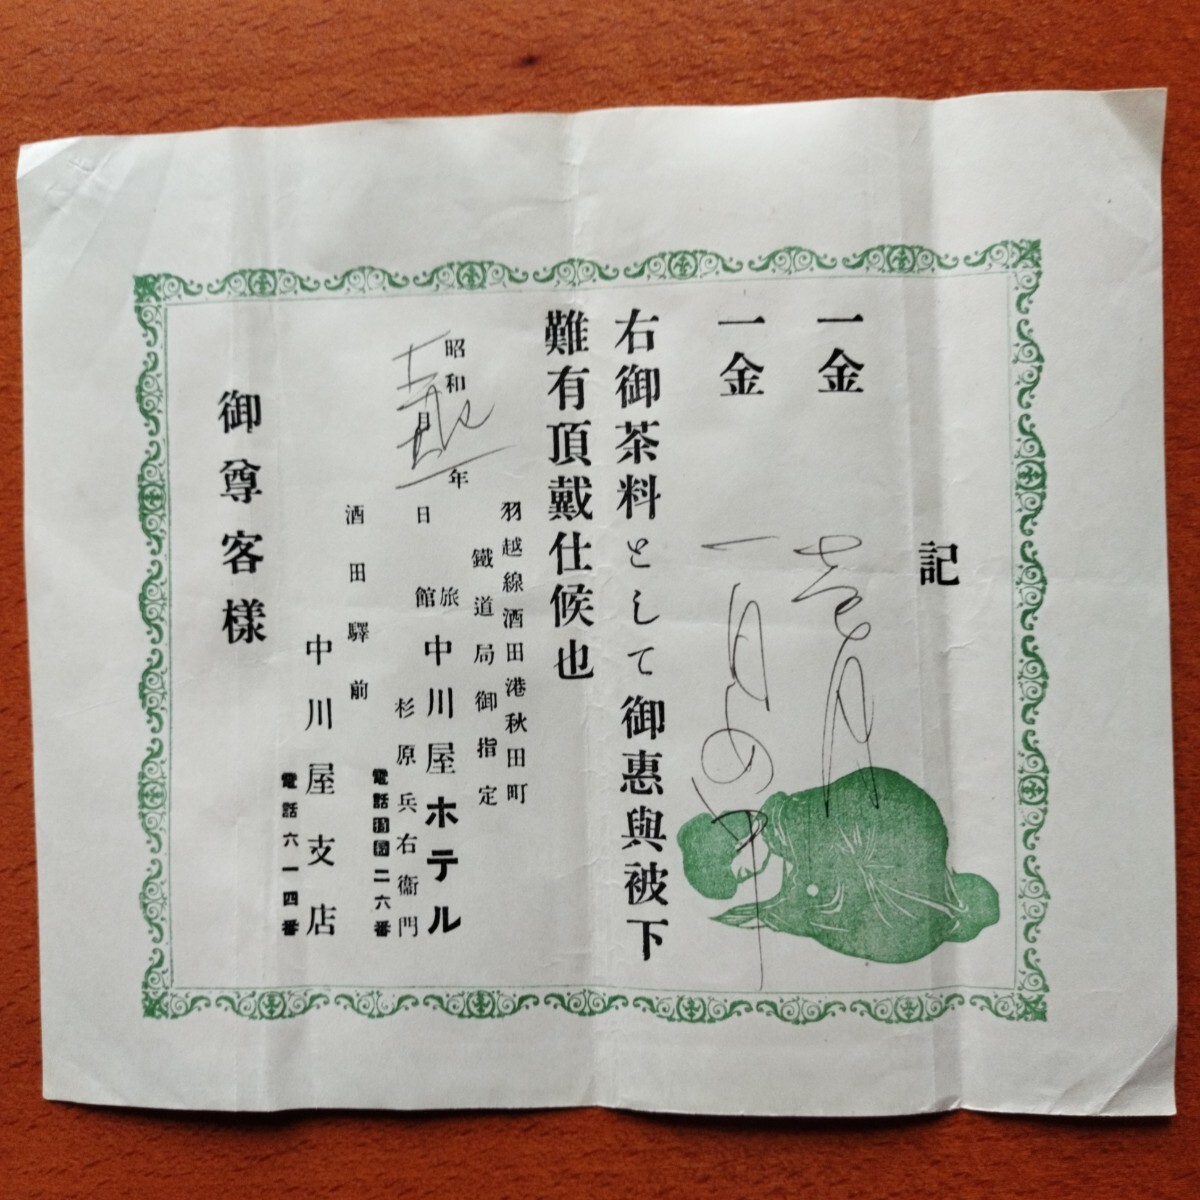 記
一金
一金
右御茶料として御惠與被下
難有頂戴仕候也
昭和 年
月 日
羽越線酒田港秋田町
鐵道局御指定
旅館 中川屋ホテル
杉原兵右衞門
電話特長二六番
酒田驛前
中川屋支店
電話六一四番
御尊客樣